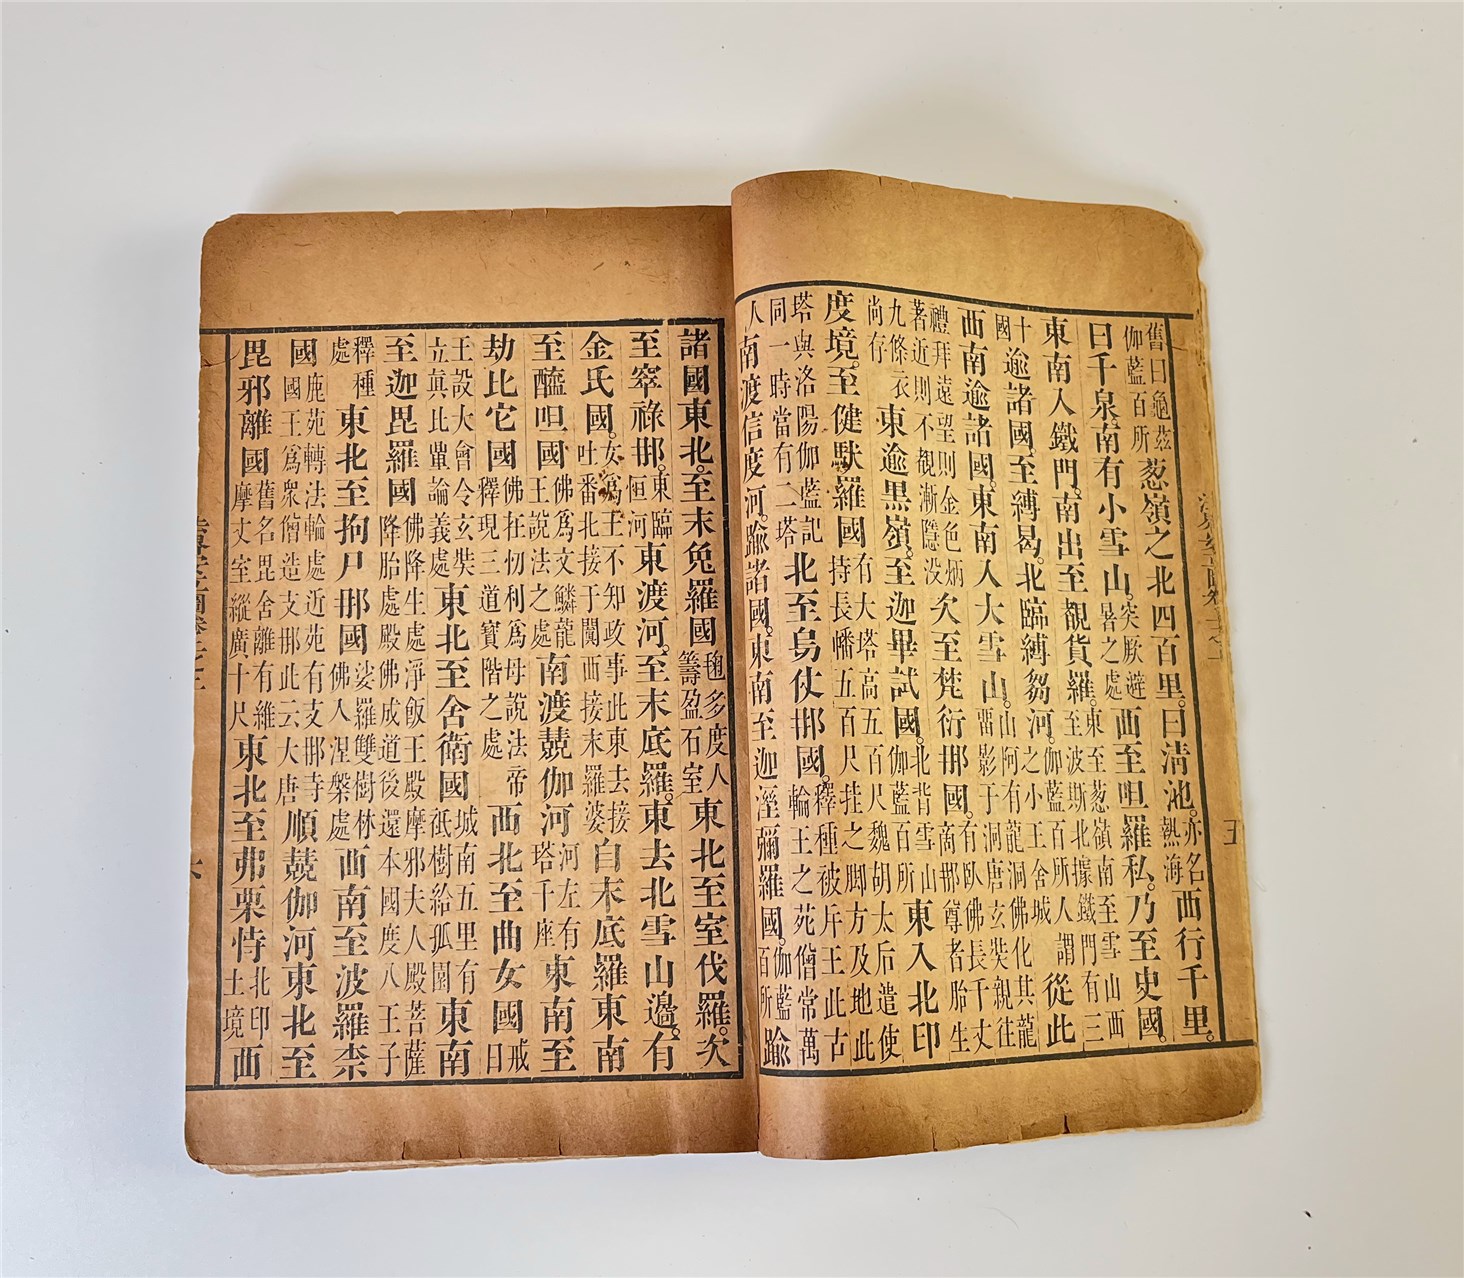 舊曰龜茲伽藍百所蔥嶺之北四百里。曰清池。亦名熱海西行千里。
曰千泉。南有小雪山。突厥避暑之處西至呾羅私。乃至史國。
東南入鐵門。南出至覩貨羅。東至蔥嶺南至雪山西至波斯北據鐵門有三
十國逾諸國。至縛曷。北臨縛芻河。伽藍百所人謂之小王舍城從此
西南逾諸國。東南入大雪山。山阿有龍洞佛化其龍畱影于洞唐玄奘親往
禮拜遠望則金色炳著近則不觀漸隱没次至梵衍那國。有臥佛長千丈商那尊者胎生
九條衣尚存東逾黑嶺。至迦畢試國。北背雪山伽藍百所東入北印
度境。至健馱羅國有大塔高五百尺魏胡太后遣使持長幡五百尺挂之脚方及地此
塔與洛陽伽藍記同一時當有二塔北至烏仗那國。釋種被斥王此古輪王之苑僧常萬
人南渡信度河。踰諸國。東南至迦溼彌羅國。伽藍百所踰
五
諸國東北。至末兔羅國毱多度人籌盈石室東北至室伐羅。次
至窣祿那。東臨恒河東渡河。至末底羅。東去北雪山邊。有
金氏國。女爲王不知政事此東去接吐番北接于闐西接末羅婆自末底羅東南
至醯呾國佛爲文鱗龍王說法之處南渡兢伽河河左有塔千座東南至
劫比它國佛在忉利爲母說法帝釋現三道寶階之處西北至曲女國戒日
王設大會令玄奘立真比量論義處東北至舍衛國城南五里有祇樹給孤園東南
至迦毘羅國佛降生處淨飯王殿摩邪夫人殿菩薩降胎處殿佛成道後還本國度八王子
釋種處東北至拘尸那國娑羅雙樹林佛入涅槃處西南至波羅柰
國鹿苑轉法輪處近苑有支那寺國王爲衆僧造支那此云大唐順兢伽河東北至
毘邪離國舊名毘舍離有維摩丈室縱廣十尺東北至弗栗恃北印土境西